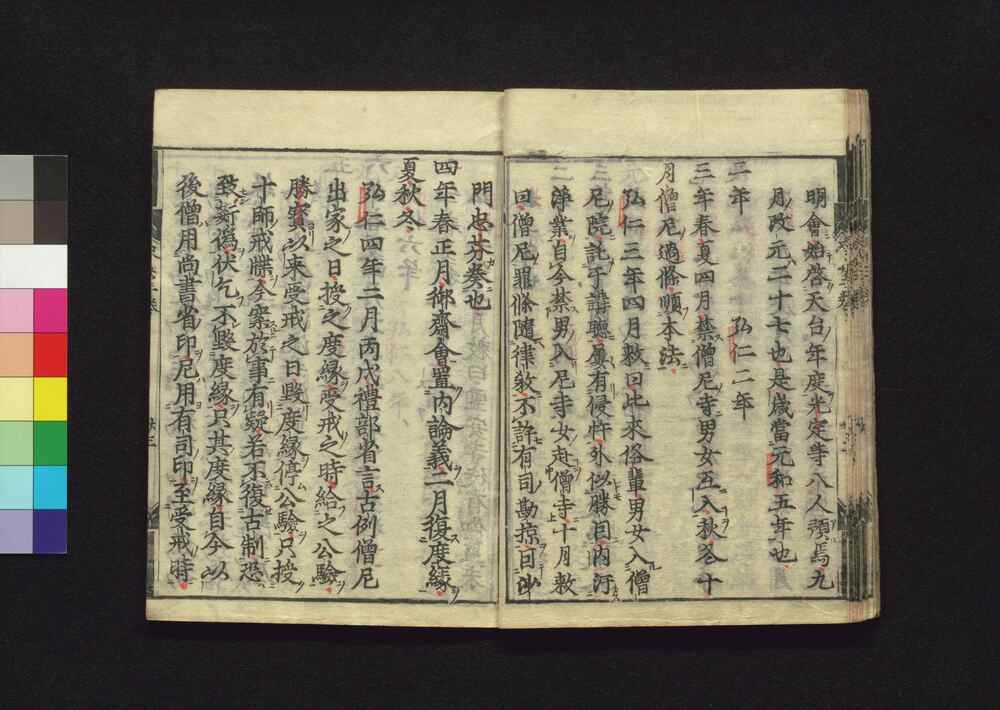 明會始啓天台年度光定等八人預焉九
月改元二十七也是歲當元和五年也
二年　弘仁二年
三年春夏四月禁僧尼寺男女互入秋冬十
月僧尼過條順本法
弘仁三年四月敕曰比來俗輩男女入僧
尼院託于講聽屢有侵忤外似勝因內汙
淨業自今禁男入尼寺女赴僧寺十月敕
曰僧尼罪條隨律敎不許有司勘掠曰沙
門忠芬奏也
四年春正月御齋會置內論義二月復度緣
夏秋冬
弘仁四年二月丙戌禮部省言古例僧尼
出家之日授之度緣受戒之時給之公驗
勝寶以來受戒之日毀度緣停公驗只授
十師戒牒今案於事有疑若不復古制恐
致姧僞伏乞不毀度緣只其度緣自今以
後僧用尚書省印尼用有司印至受戒時